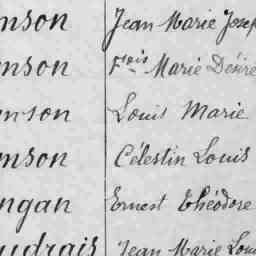 mson Jean Marie Josep
mson Fçois Marie Désiré
mson Louis Marie
mson Célestin Louis
ngan Ernest Théodore
udrais Jean Marie Loui